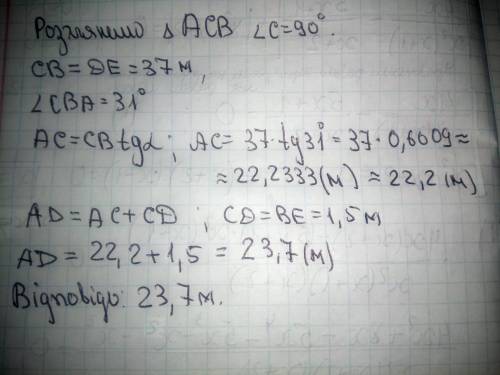 Розглянимо △ ACB ∠C=90°.
CB=DE=37м,
∠CBA=31°
AC=CBtgα; AC=37·tg31°=37·0,6009≈
≈22,2333(м)≈22,2(м)
AD=AC+CD; CD=BE=1,5м
AD=22,2+1,5=23,7(м)
Відповідь: 23,7м.